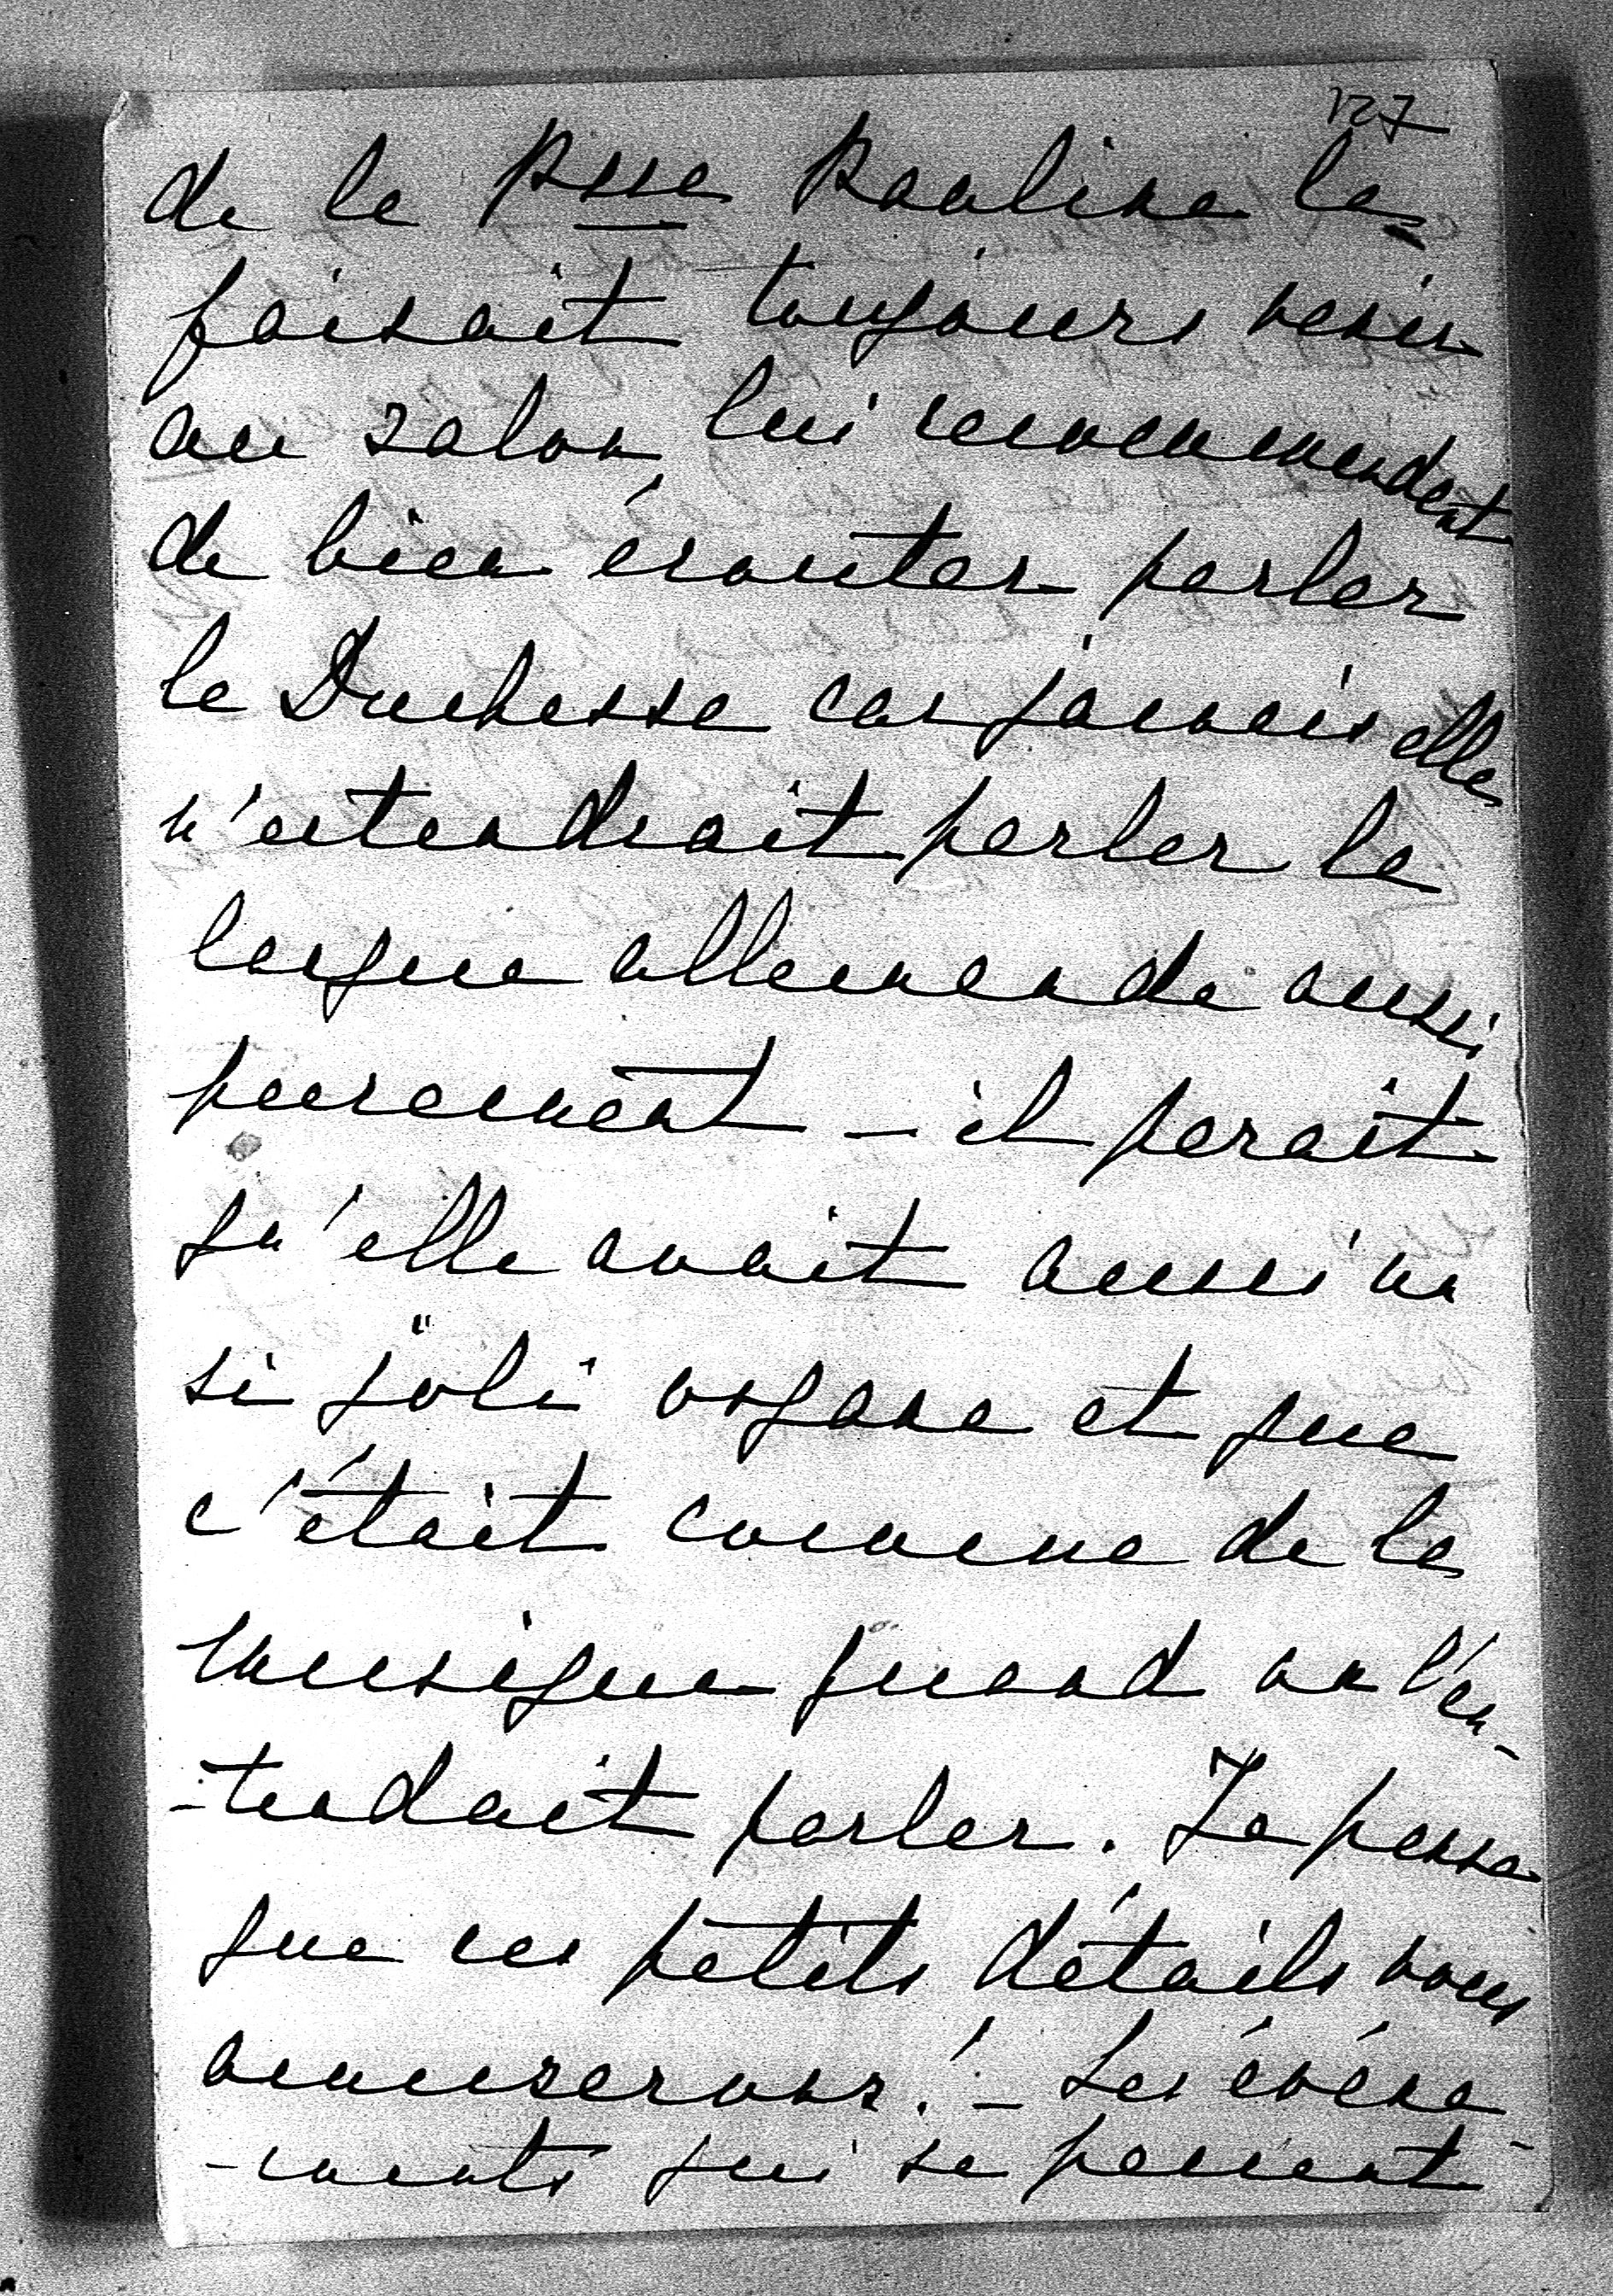 127
de la Psse Pauline la
faisait toujours venir
au salon, lui recommendant
de bien écouter parler
la Duchesse car jamais elle
n'entendrait parler la
langue allemande aussi
purement – il parait
qu'elle avait aussi un
si joli organe et que
c'était comme de la
musique quand on l'en-
-tendait parler. Je pense
que ces petits détails vous
amuseront! – Les évène-
-ments qui se passent